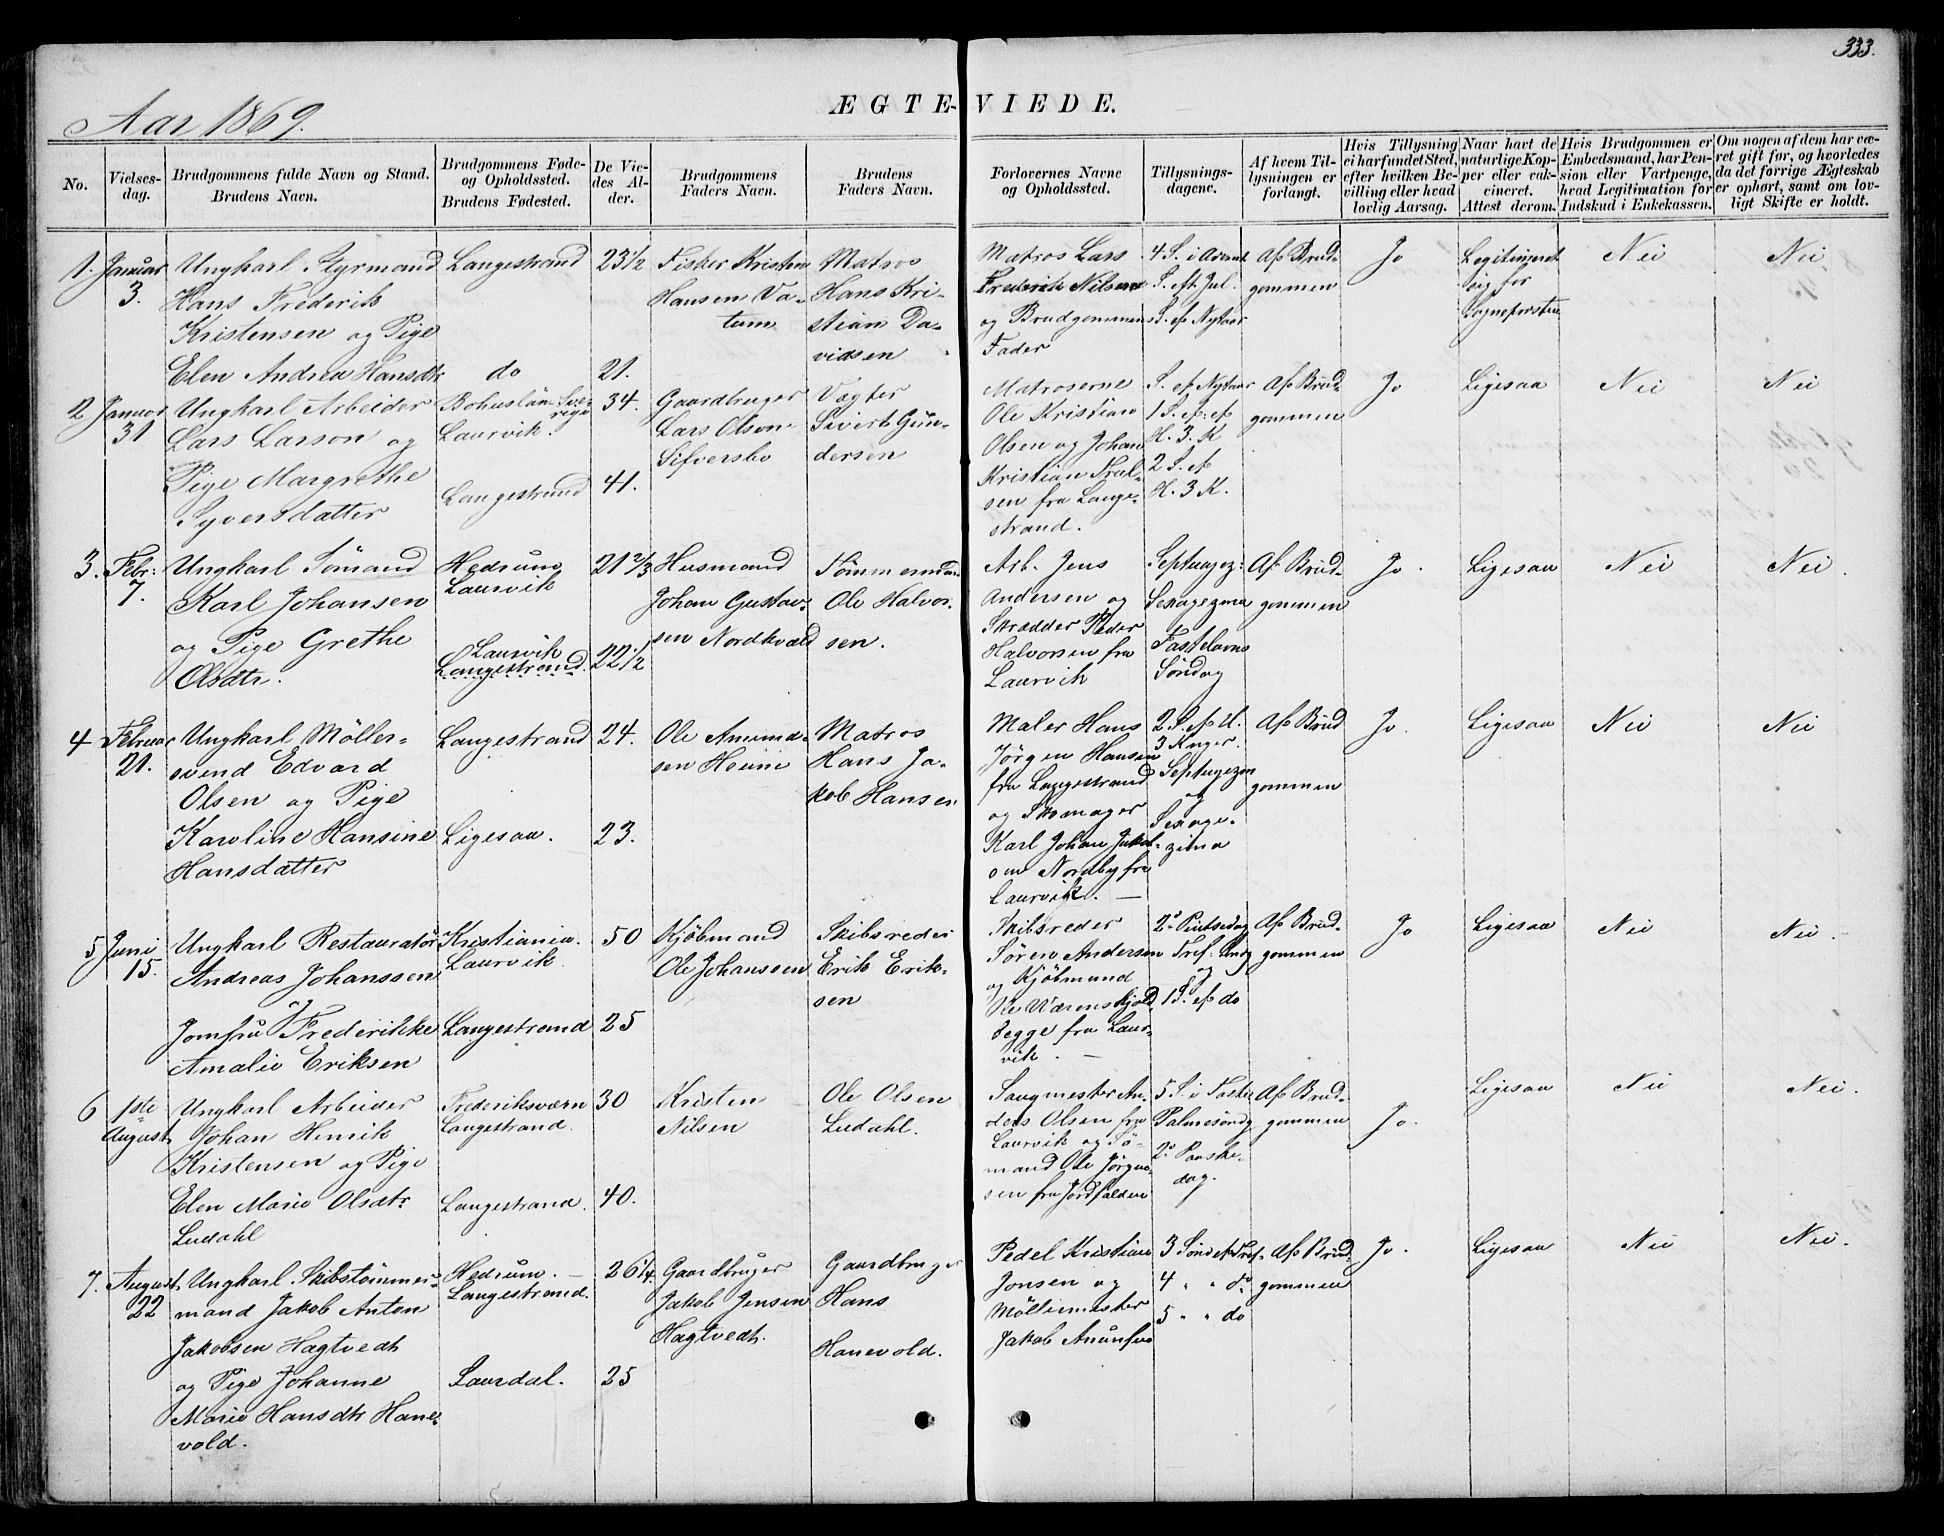 333.
Aar 1869.
ÆGTE-VIEDE.
No.
Vielses-
dag.
Brudgommens fulde Navn og Stand.
Brudens Navn.
Brudgommens Føde-
og Opholdssted.
Brudens Fødested.
De Vie-
des Al-
der.
Brudgommens
Faders Navn.
Brudens
Faders Navn.
Forlovernes Navne
og Opholdssted.
Tillysnings-
dagene.
Af hvem Til-
lysningen er
forlangt.
Hvis Tillysning
ei har fundet Sted,
efter hvilken Be-
villing eller hvad
lovlig Aarsag.
Naar havt de
naturlige Kop-
per eller vak-
cineret.
Attest derom.
Hvis Brudgommen er
Embedsmand, har Pen-
sion eller Vartpenge,
hvad Legitimation for
Indskud i Enkekassen.
Om nogen af dem har væ-
ret gift før, og hvorledes
da det forrige Ægteskab
er ophørt, samt om lov-
ligt Skifte er holdt.
1. Januar
3.
Ungkarl Styrmand
Hans Frederik
Kristensen og Pige
Elen Andrea Hansdtr
Langestrand
do
23 1/2
21.
Fisker Kristen
Hansen Va-
tum
Matros
Hans Kri-
stian Da-
vidsen
Matros Lars
Frederik Nilsen
og Brudgommens
Fader
4. S. i Advent
S. eft Jul.
S. ef Nytaar
Af Brud-
gommen
Jo
Legitimeret
sig for
Sogneprsten
Nei
Nei
2 Januar
31
Ungkarl Arbeider
Lars Larson og
Pige Margrethe
Syversdatter
Bohuslän Sve-
rige
Laurvik.
Langestrand
34.
41.
Gaardbruger
Lars Olson
Sifversbo
Vægter
Sivert Gun-
dersen
Matroserne
Ole Kristian
Olsen og Johan
Kristian
sen fra Lange-
strand.
S. ef Nytaar
1 S. ef: ef
H. 3. K
2 S. ef
H. 3 K.
Af Brud-
gommen
Jo
Ligesaa
Nei
Nei
3. Febr:
7.
Ungkarl Sömand
Karl Johansen
og Pige Grethe
Olsdtr.
Hedrum
Laurvik
Laurvik
Langestrand.
21 2/3
22 1/2
Husmand
Johan Gustav-
sen Nordkvæld
Tömmermdan
Ole Halvor-
sen.
Arb. Jens
Andersen og
Skrædder Peder
Halvorsen fra
Laurvik
Septuagez:
Sexagezma
Fastelavns
Søndag
Af Brud-
gommen
Jo.
Ligesaa
Nei
Nei.
4 Februar
21.
Ungkarl Möller-
svend Edvard
Olsen og Pige
Karoline Hansine
Hansdatter
Langestrand
Ligesaa.
24.
23.
Ole Amund-
sen Heine
Matros
Hans Ja-
kob Hansen
Maler Hans
Jørgen Hansen
fra Langestrand
og Skomager
Karl Johan Jakob-
sen Nordby fra
Laurvik. —
2. S. ef H.
3 Konger.
Septuagezm
og
Sexage-
zima
Af Brud
gommen
Jo.
Ligesaa
Nei
Nei
5 Juni
15.
Ungkarl Restauratör
Andreas Johanssen
og
Jomfru Frederikke
Amalie Eriksen
Kristiania.
Laurvik
Langestrand
50
25
Kjöbmand
Ole Johanssen
Skibsreder
Erik Erik-
sen
Skibsreder
Sören Andersen
og Kjöbmand
Værenskjold
begge fra Laur-
vik. —
2. Pintsedag
Tref: Sndg
og
1 S. ef do
Af Brud-
gommen
Jo
Ligesaa
Nei
Nei. —
6 1ste
August
Ungkarl Arbeider
Johan Henrik
Kristensen og Pige
Elen Marie Olsdtr
Ludahl
Frederiksværn
Langestrand.
Langestrand.
30
40.
Kristen
Nilsen
Ole Olsen
Ludahl.
Saugmester An-
ders Olsen fra
Laurvik og Sö-
mand Ole Jörgen-
sen fra Jordfalden
5 S. i Faste
Palmesöndg
2. Paaske-
dag.
Af Brud-
gommen
Jo.
Ligesaa
Nei
Nei.
7. August
22
Ungkarl Skibstömmer-
mand Jakob Anton
Jakobsen Hagtvedt
og Pige Johanne
Marie Hansdtr Hane-
vold.
Hedrum. —
Langestrand.
Laurdal.
26 1/4.
25
Gaardbruger
Jakob Jensen
Hagtvedt.
Gaardbruger
Hans
Hanevold.
Pedel Kristian
Jonsen og
Möllemester
Jakob
3 Sönd ef Tref.
4 " " do
5 " " do
Af Brud-
gommen
Jo.
Ligesaa
Nei
Nei.